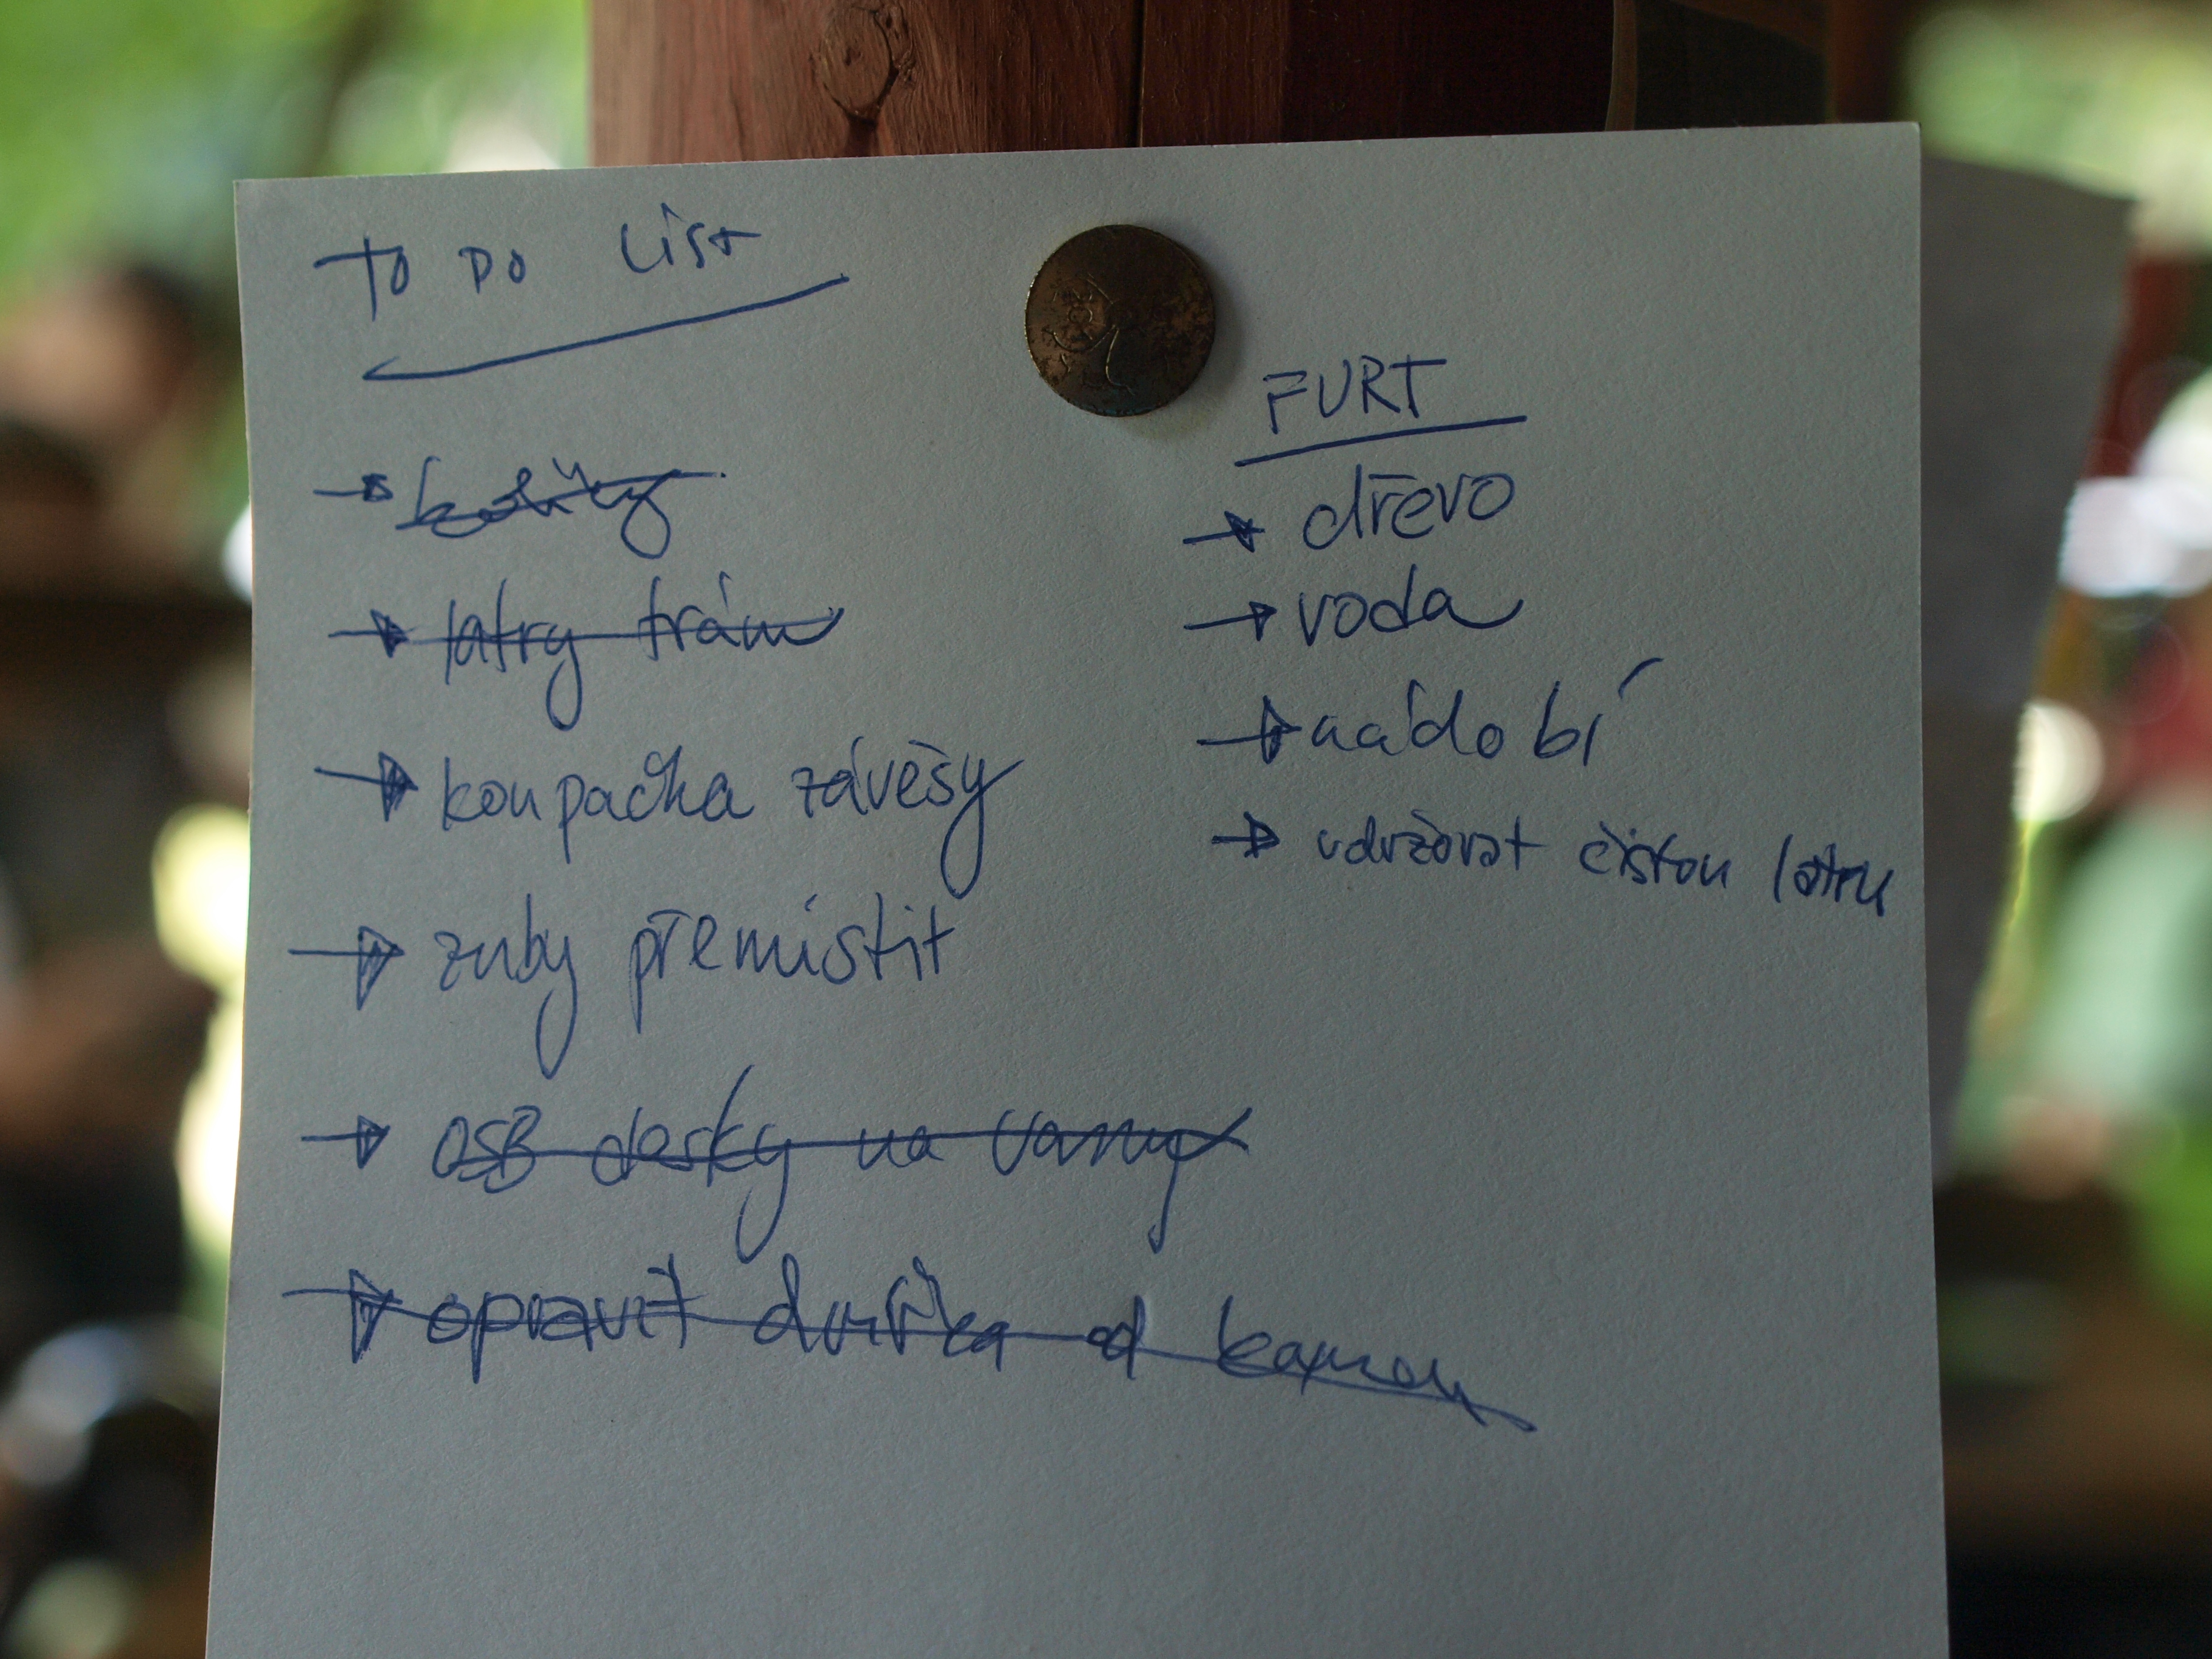 TO DO LIST
latry trám
koupačka závěsy
zuby přemístit
OSB desky na vany
opravit dvířka od kamen
FURT
dřevo
voda
nádobí
udržovat čistou latru